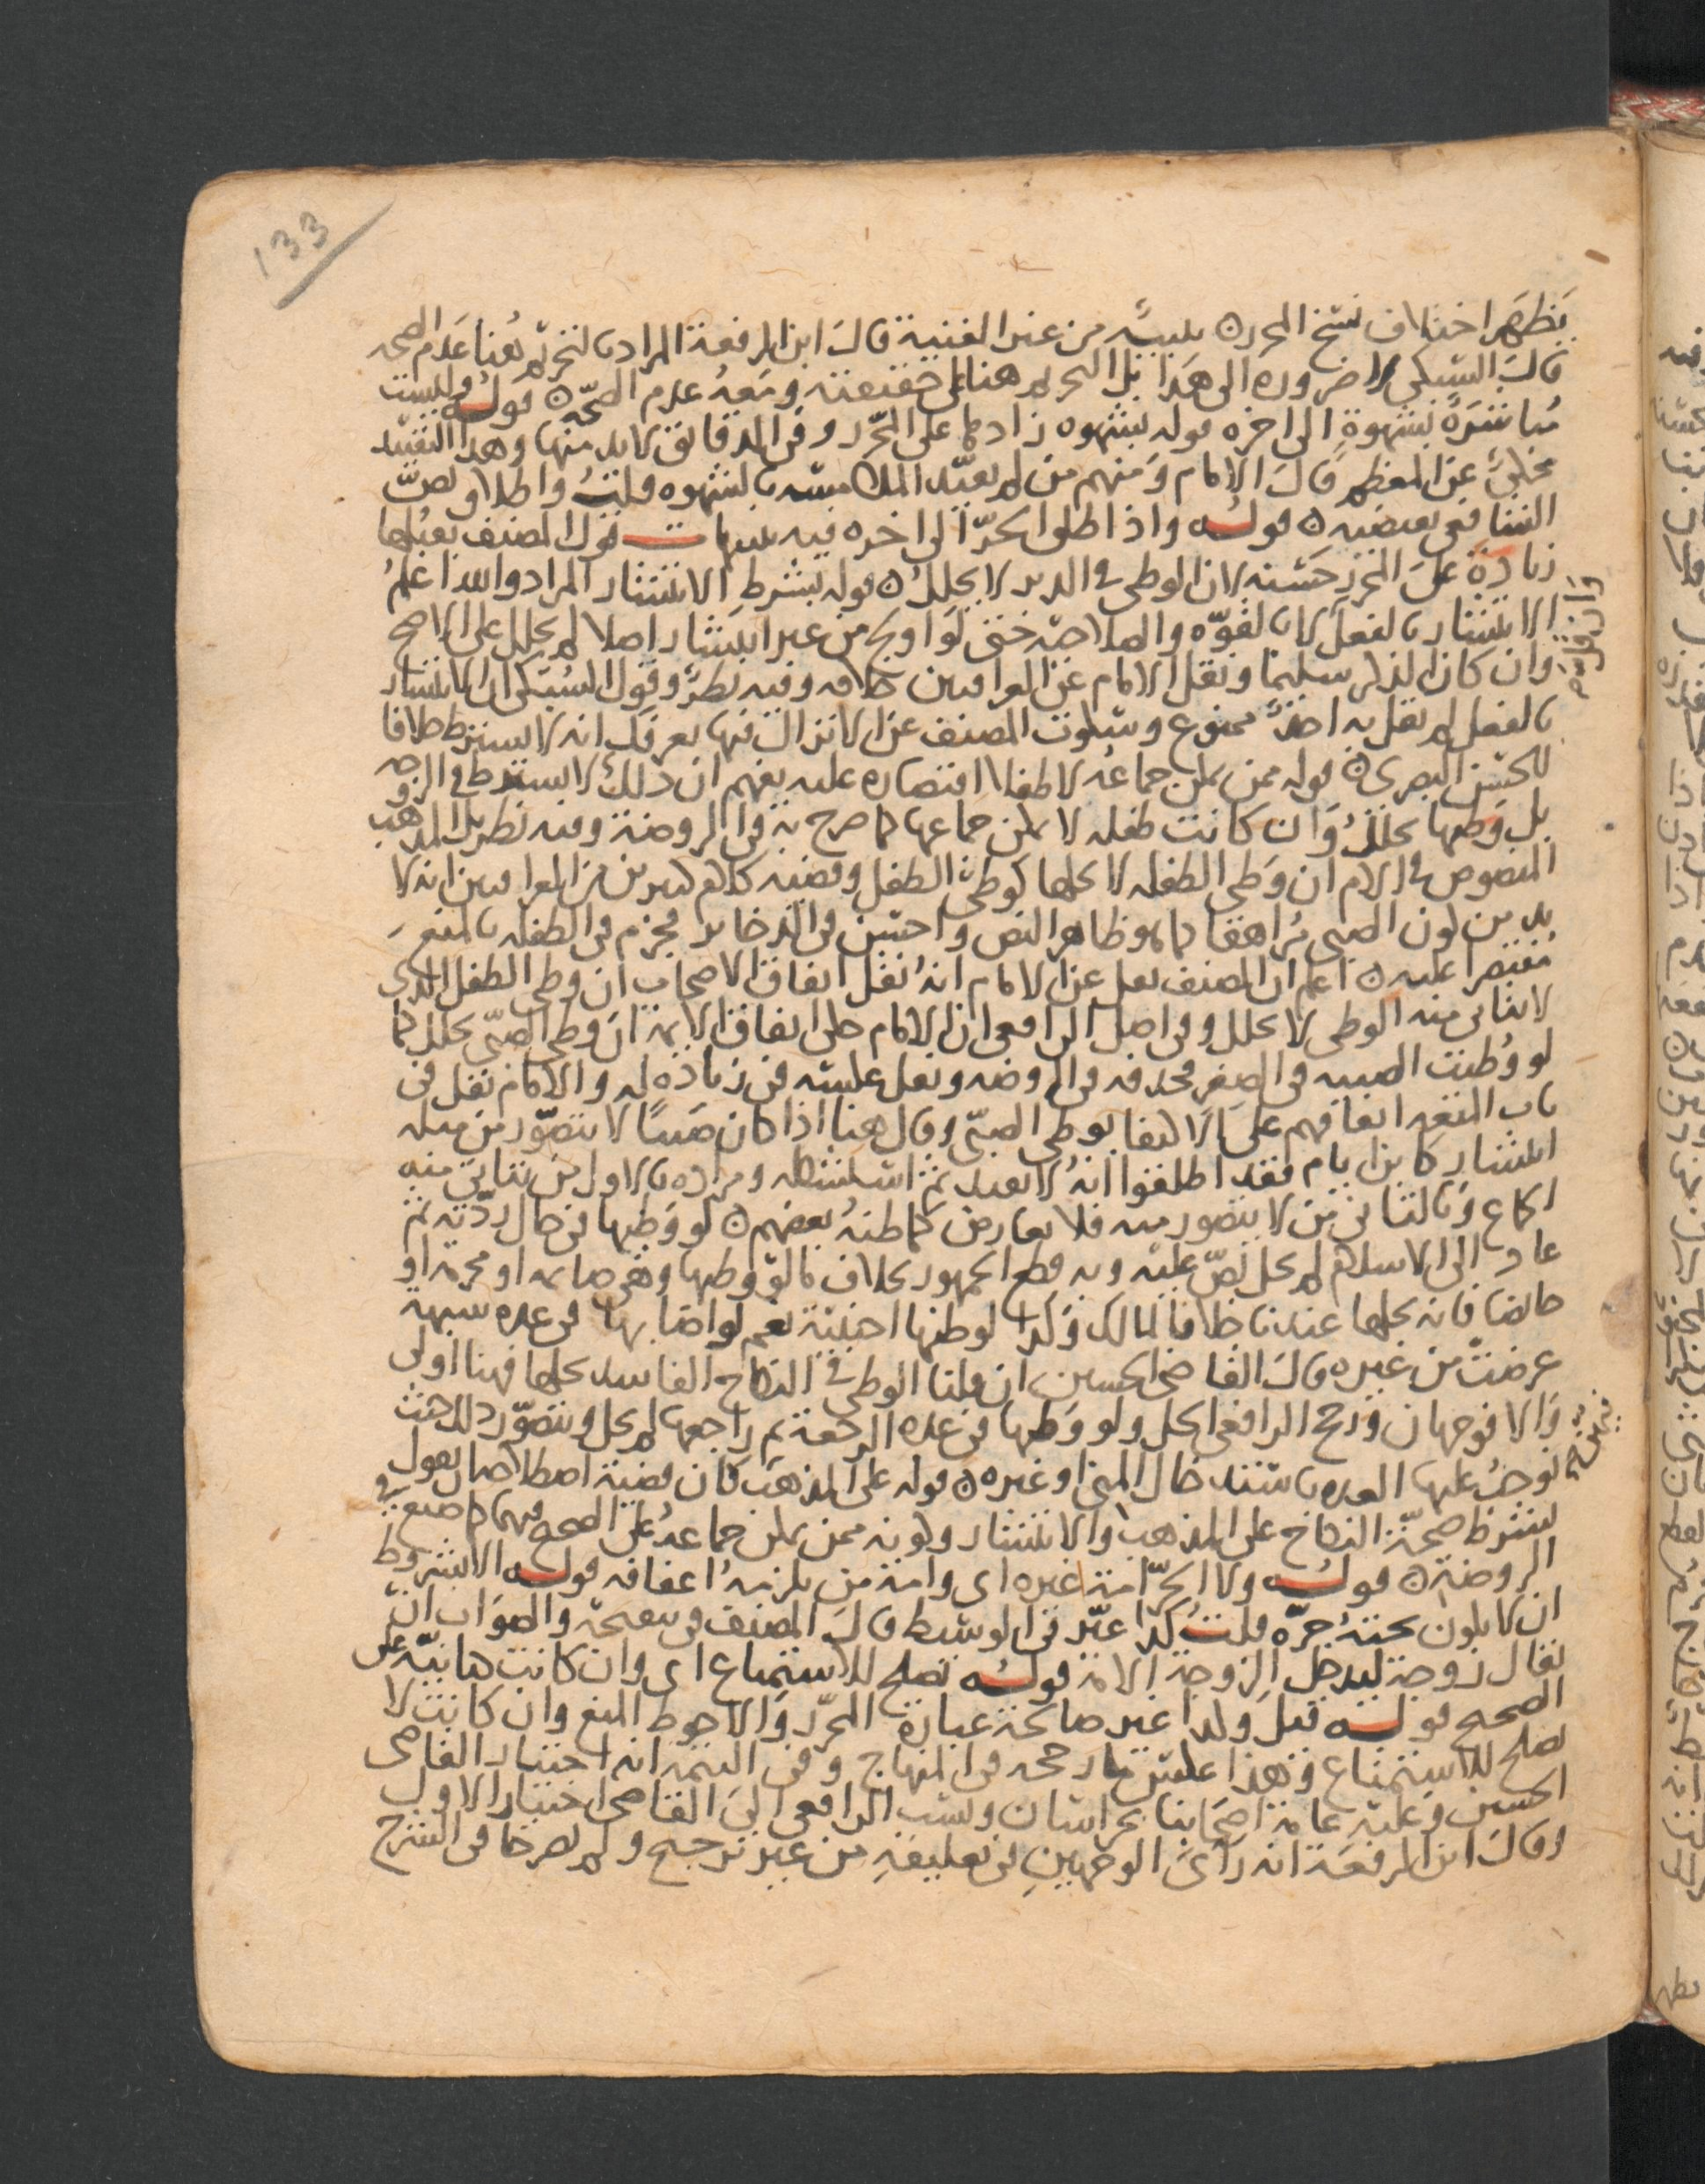 133
يظهر اختلاف نسخ المحرر ن تنبيه من عند الغنية قال ابن الرفعة المراد بالتحريم هنا عدم الصحه
قال السبكي لا ضروره الى هذا بل التحريم هنا على حقيقته ومعه عدم الصحة ن قوله وليست
مباشرة بشهوة الى اخره قوله بشهوه زادها على المحرر وفي الدقائق لابد منها وهذا التقييد
محكي عن المعظم قال الامام ومنهم من لم يقيد الملامسه بالشهوه قلت واطلاق نص
الشافعي يعضده ن قوله واذا طلق الحر الى اخره فيه تنبيهات قول المصنف بقبلها
زيادة على المحرر حسنه لان الوطي في الدبر لا يحلل ن قوله بشرط الانتشار المراد والله اعلم
الانتشار بالفعل لا بالقوه والصلاحيه حتى لو اولج من غير انتشار اصلا لم يحلل على الاصح
وان كان الذكر سليما ونقل الامام عن العراقيين خلافه وفيه نظر وقول السبكي ان الانتشار
بالفعل لم يقل به احد ممنوع وسكوت المصنف عن الانزال فيها يعرفك انه لا يشترط خلافا
للحسن البصري ن قوله ممن يمكن جماعه لا طفلا اقتصاره عليه يفهم ان ذلك لا يشترط في الزوجه
بل وطيها يحلل وان كانت طفله لا يمكن جماعها كما صرح به في الروضة وفيه نظر بل المذهب
المنصوص في الام ان وطي الطفله لا يحلها كوطي الطفل وقضيه كلام كثيرين من العراقيين انه لا
بد من كون الصبي مراهقا كما هو ظاهر النص واحسن في الذخاير فجزم في الطفله بالمنع
مقتصرا عليه ن اعلم ان المصنف نقل عن الامام انه نقل اتفاق الاصحاب ان وطي الطفل الذي
لا يتاتى منه الوطي لا يحلل وفي اصل الرافعي ان الامام حكى اتفاق الايمه ان وطي الصبي يحلل كما
لو وطئت الصبيه في الصغر فحذفه في الروضه ونقل عكسه في زياده له والامام نقل في
باب المتعه اتفاقهم على الاكتفا بوطي الصبي وقال هنا اذا كان صبيا لا يتصور من مثله
انتشار كابن ايام فقد اطلقوا انه لا يعتد ثم استشكله ومراده بالاول من يتاتى منه
الجماع وبالثاني من لا يتصور منه فلا تعارض كما ظنه بعضهم ن لو وطيها في حال ردته ثم
عاد الى الاسلام لم يحل نص عليه وبه قطع الجمهور بخلاف ما لو وطيها وهي صايمه او محرمه او
حائضا فانه يحلها عندنا خلافا لمالك وكذا لو ظنها اجنبية نعم لو اصابها في عده شبهة
عرضت من غيره قال القاضي الحسين ان قلنا الوطي في النكاح الفاسد يحلها فهنا اولى
والا فوجهان ورجح الرافعي الحل ولو وطيها في عده الرجعة ثم راجعها لم يحل ويتصور ذلك حيث
توجب عليها العده باستدخال المني او غيره ن قوله على المذهب كان قضية اصطلاحه ان يقول
بشرط صحة النكاح على المذهب والانتشار وكونه ممن يمكن جماعه على الصحيح فيهما كما صنع في
الروضة ن قوله ولا الحر امة غيره اي وامة من يلزمه اعفافه قوله الا بشروط
ان لا يكون تحته حرة قلت كذا عبر في الوسيط قال المصنف في تنقيحه والصواب ان
يقال زوجة ليدخل الزوجة الامة قوله تصلح للاستمتاع اي وان كانت كتابيه على
الصحيح قوله قيل ولا غير صالحة عبارة المحرر والاحوط المنع وان كانت لا
تصلح للاستمتاع وهذا عكس ما رجحه في المنهاج وفي التتمه انه اختيار القاضي
الحسين وعليه عامة اصحابنا بخراسان ونسب الرافعي الى القاضي اختيار الاول
وقال ابن الرفعة انه راى الوجهين في تعليقه من غير ترجيح ولم يصرحا في الشرح